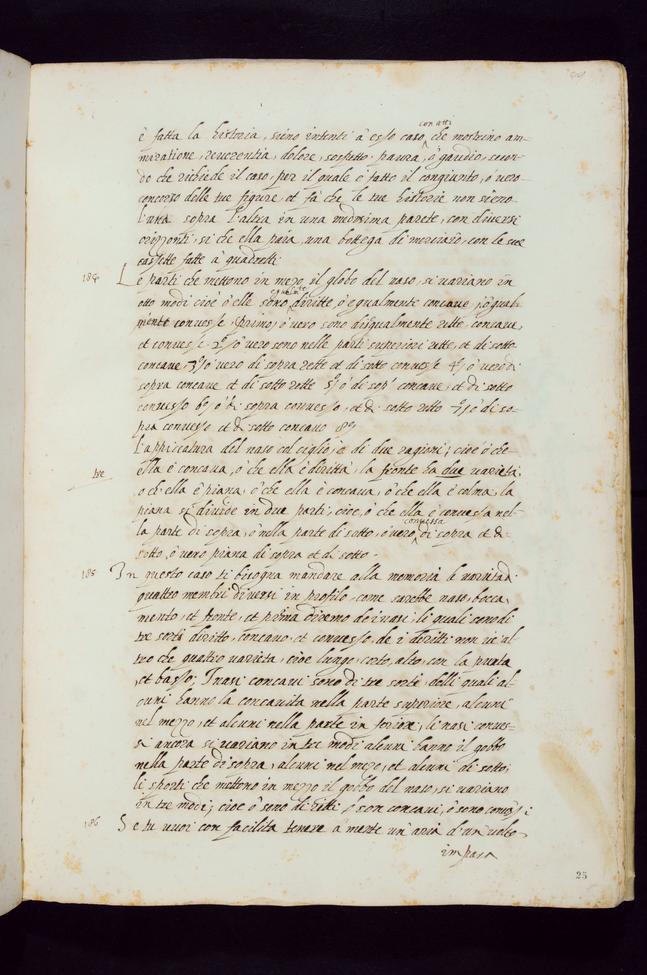 con atti
è fatta la historia, sieno intenti à esso caso, che mostrino am-
miratione, reverentia, dolore, sospetto, paura, ò gaudio, secon-
do che richiede il caso, per il quale è fatto il congiunto, ò vero
concorso delle tue figure, et fà che le tue historie non sieno
l'una sopra l'altra in una medesima parete, con diversi
orizzonti, si che ella paia, una bottega di merciaio, con le sue
cassette fatte à quadretti.
184 Le parti che mettono in mezo, il globo del naso, si variano in
otto modi cioè ò elle sono diritte, ò egualmente concave, ò egual-
mente convesse, primo, ò vero sono disegualmente rette, concave,
et convesse 2º ò vero sono nelle parti superiori rette, et di sotto
concave, 3º ò vero di sopra rette et di sotto convesse 4º, ò vero di
sopra concave et di sotto rette 5º, ò di sop' concave, et di sotto
convesse 6º, ò di sopra convesse, et di sotto rette 7º, ò di so-
pra convesse et di sotto concavo 8º,
L'appiccatura del naso col ciglio, è di due ragioni, cioè ò che
ella è concava, ò che ella è diritta, la fronte ha due varieta,
tre
o ch'ella è piana, ò che ella è concava, ò che ella è colma, la
piana si divide in due parti, cioè, ò che ella è convessa nel-
la parte di sopra, ò nella parte di sotto, ò vero convessa di sopra et di
sotto, ò vero piana di sopra et di sotto.
185 In questo caso ti bisogna mandare alla memoria le varietà di
quattro membri diversi in profilo, come sarebbe naso, bocca
mento, et fronte, et prima diremo de i nasi, li quali sono di
tre sorti diritto, concavo, et convesso, de i diritti non v'è al
tro che quattro varieta, cioè lungo, corto, alto, con la punta
, et basso; I nasi concavi sono di tre sorti, delli quali al-
cuni hanno la concavità nella parte superiore, alcuni
nel mezzo, et alcuni nella parte inferiore; li nasi conves-
si ancora si variano in tre modi alcuni hanno il gobbo
nella parte di sopra, alcuni nel mezo, et alcuni di sotto;
li sporti che mettono in mezzo il gobbo del naso, si variano
in tre modi; cioè ò sono diritti ò son concavi, ò sono convessi
186 Se tu vuoi con facilità tenere à mente un'aria d'un volto
impara
25